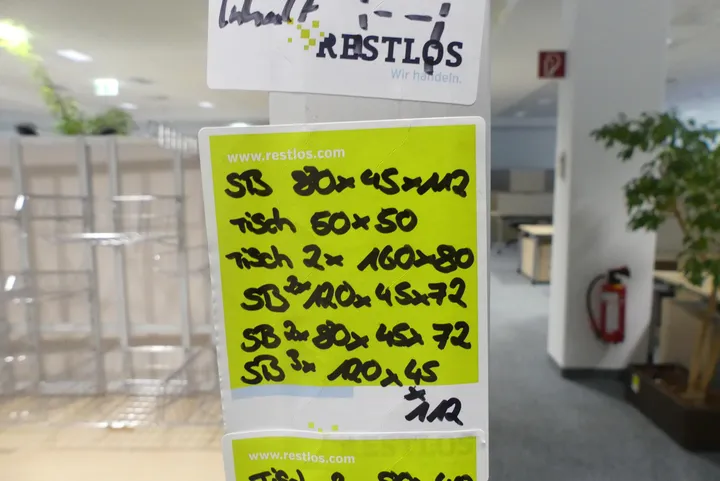 Inhalt :--,
RESTLOS
Wir handeln.
www.restlos.com
SB 80x45x112
Tisch 50x50
Tisch 2x 160x80
SB 2x 120x45x72
SB 2x 80x45x72
SB 3x 120x45
x112
RESTLOS
www.restlos.com